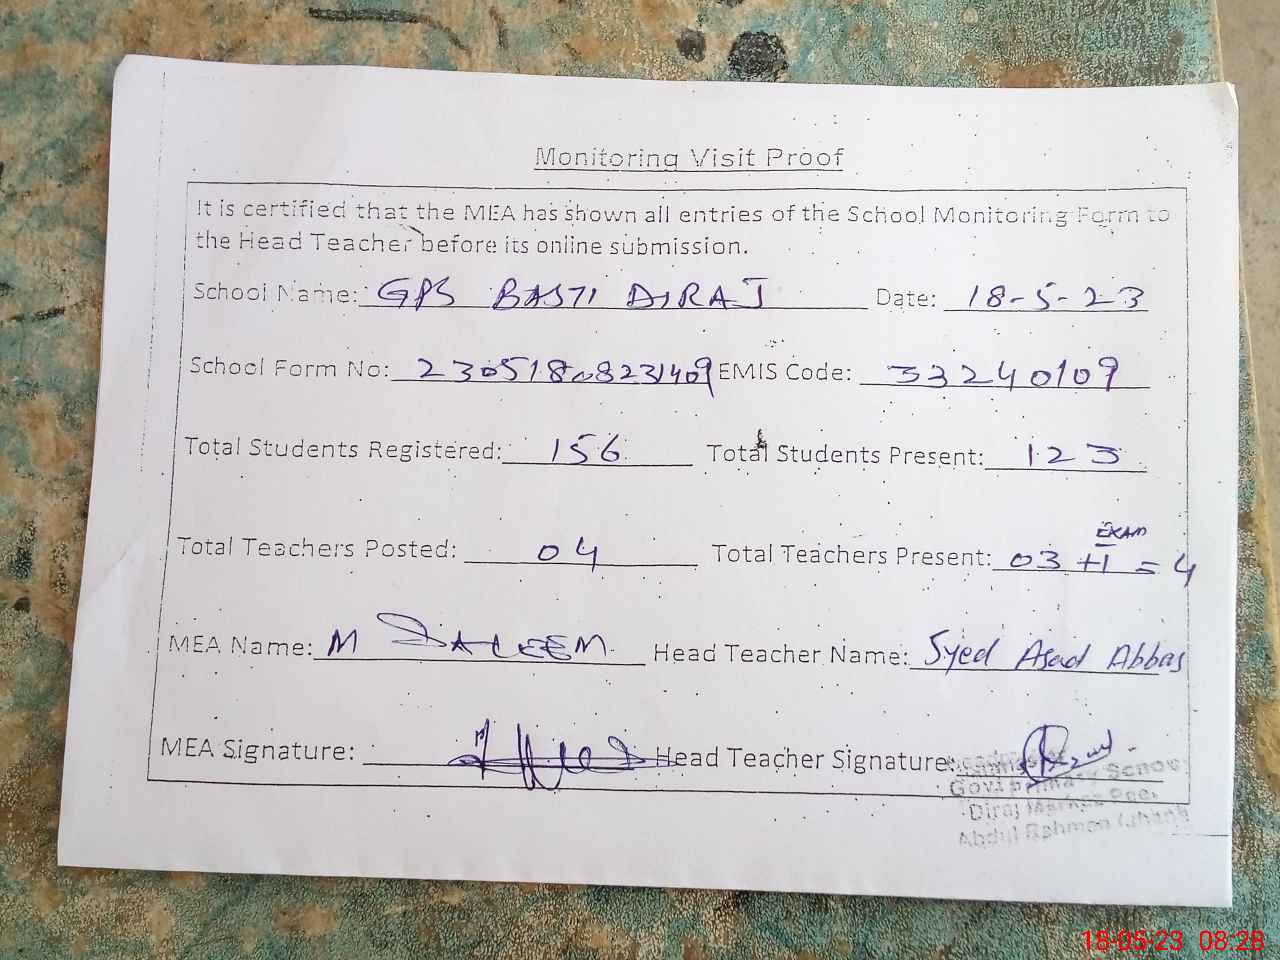 Monitoring Visit Proof
It is certified that the MEA has shown all entries of the School Monitoring Form to
the Head Teacher before its online submission.
School Name: GPS BASTI DIRAJ Date: 18-5-23
School Form No: EMIS Code: 33240109
Total Students Registered: 156 Total Students Present: 123
EXAM
Total Teachers Posted: 04 Total Teachers Present: 03 +1 = 4
MEA Name: M SALEEM Head Teacher Name: Syed Asad Abbas
MEA Signature: Head Teacher Signature:
Govt Primary School
Diraj Markaz
Abdul Rahman
18-05-23 08:28